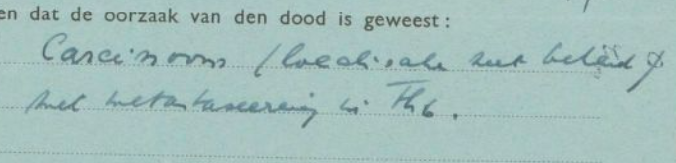 en dat de oorzaak van den dood is geweest:
Carcinoom (localisatie niet bekend)
met metastaseering in Th6.